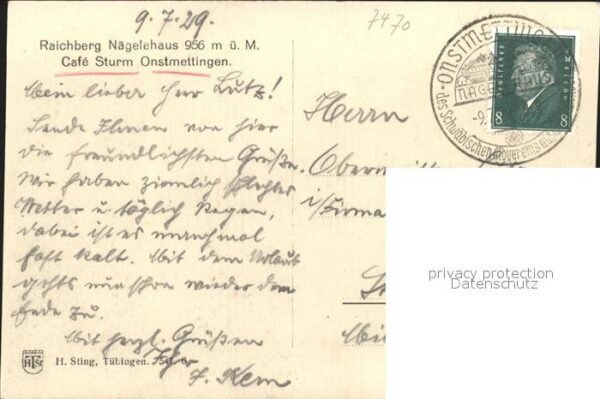 9.7.29.
7470
Raichberg Nägelehaus 956 m ü. M.
Café Sturm Onstmettingen.
Mein lieber Herr Lutz!
Sende Ihnen von hier
die freundlichsten Grüße.
Wir haben ziemlich schlechtes
Wetter u. täglich Regen,
dabei ist es manchmal
fast kalt. Mit dem Urlaub
gehts nun schon wieder dem
Ende zu.
Mit herzl. Grüßen
Ihr
F. Kern
H. Sting, Tübingen.
Herrn
i/Firma
ONSTMETTING
NÄGE
-9.
des Schwäbischen
Deutsches Reich
8 8
privacy protection
Datenschutz